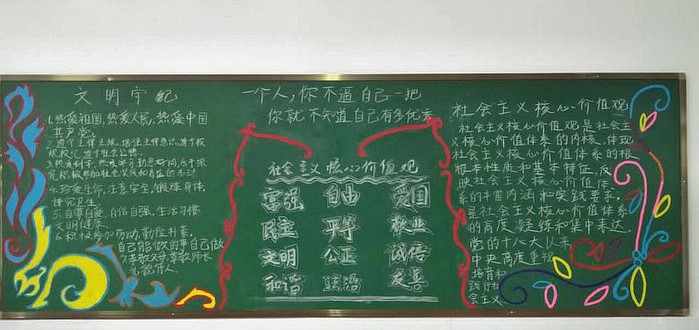 文明守纪
1.热爱祖国,热爱人民,热爱中国
共产党。
4.珍爱生命,注意安全,锻炼身体,
讲究卫生。
5.自尊自爱,自信自强,生活习惯
文明健康。
6.积极参加劳动,勤俭朴素,
自己能做的事自己做
一个人,你不逼自己一把
你就不知道自己有多优秀
社会主义核心价值观
富强 自由 爱国
民主 平等 敬业
文明 公正 诚信
和谐 法治 友善
社会主义核心价值观
社会主义核心价值观是社会主
义核心价值体系的内核,体现
社会主义核心价值体系的根
本性质和基本特征,反
映社会主义核心价值体
系的丰富内涵和实践要求,
是社会主义核心价值体系
的高度凝练和集中表达.
党的十八大以来,
中央高度重视
培育和
践行社
会主义